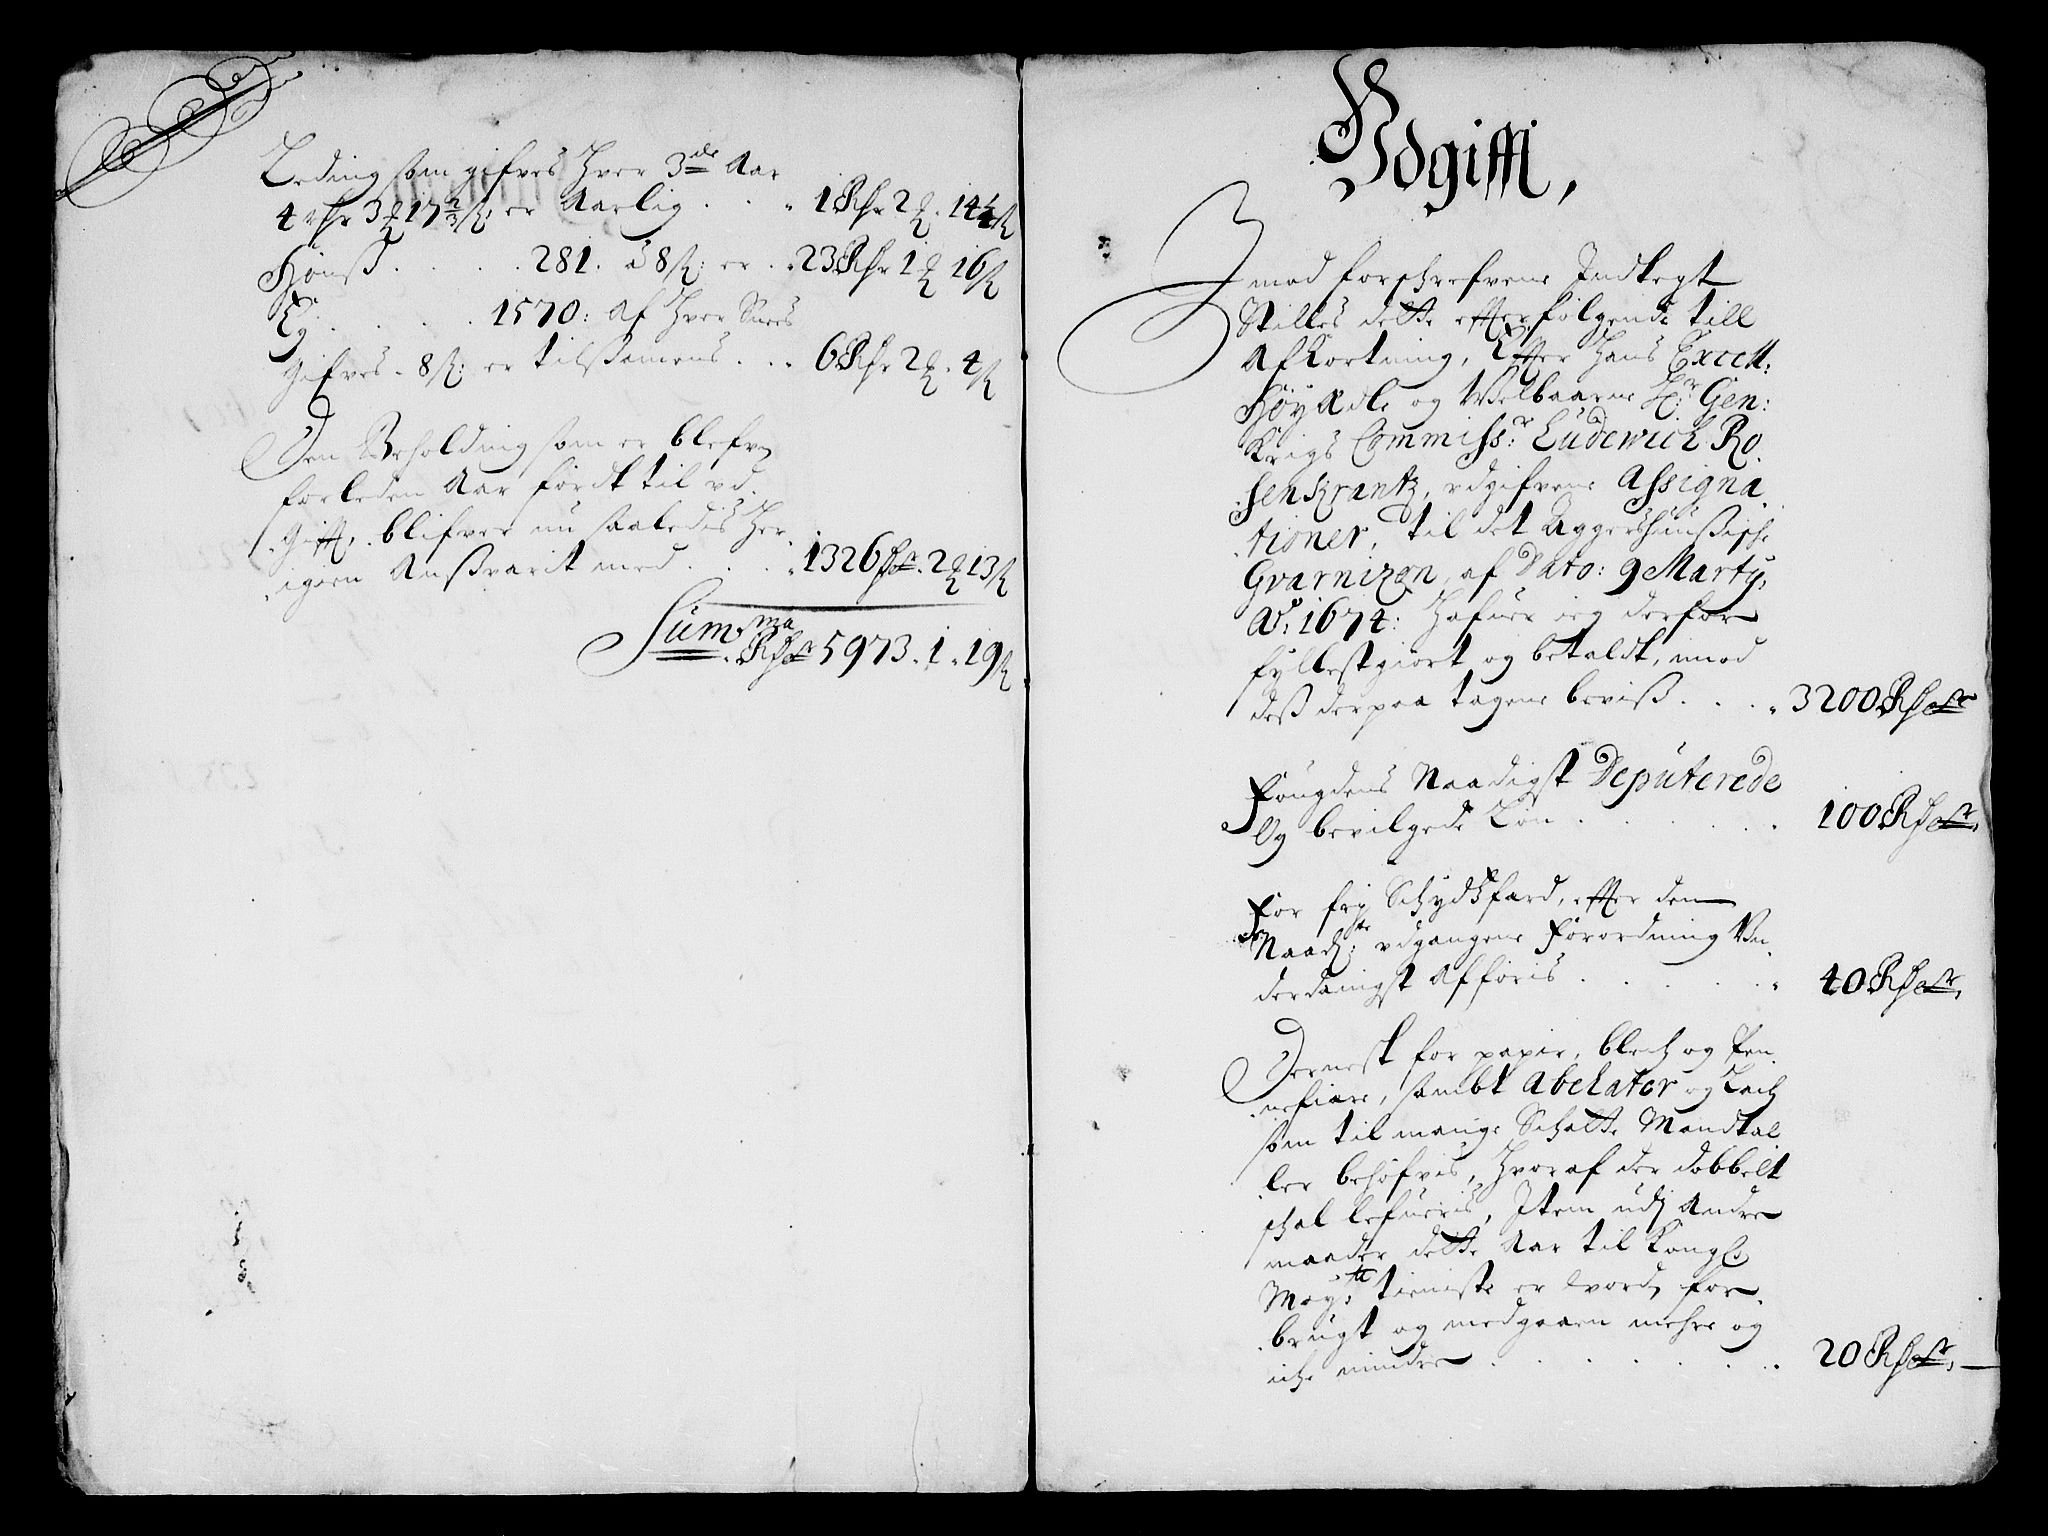 Leding som gifves Hver 3de Aar
4 rdr 3 ₰ 17 2/3 ß: er Aarlig . . . 1 Rdr 2 ₰. 14 ß
Hønß . . . . 281. à 8 ß: er . . 23 Rdr 1 ₰ 16 ß
Eg . . . . 1570: af Hver Snees
gifves . 8 ß: er tilsamens . . . 6 Rdr 2 ₰. 4 ß
Den Beholding som er blefven
forleden Aar fördt til vd.
gift, blifver nu saaledis Her.
igien Anßvarit med . . . . 1326 Rdr. 2 ₰ 13 ß
Summa
Rdr 5973. 1. 19 ß
Vdgifft,
Imod forschrefvene Indtegt
Stilles dette efterfølgende till
Afkortning, Efter Hans Excell:
Höy Adle og Welbaarne Hr: Gen:
Krigs Commissr: Ludewich Ro.
senkrantz, vdgifvene Assigna.
tioner, til det Aggershuußische
Gvarnizon, af Dato: 9 Marty,
Ao: 1674: Hafuer ieg derfor
fyllestgiort og betaldt, imod
deß derpaa tagene beviß . . . . 3200 Rdr
Fougdens Naadigst Deputerede
Og bevilgede Lön . . . . . . 100 Rdr.
For fry Schydtzfærd, efter den
Naadste: vdgangene Forordning Vn.
derdanigst Afföris . . . . . 40 Rdr.
Dernest for papir, blech og Pen.
nefiære, sambt Abelator og Lach
som til mange Schatte Mandtal
ler behöfvis, Hvoraf der dobbelt
schal lefueris, Item udj Andre
maader dette Aar til Kongl:
Mayts: tieniste er vorden for.
brugt og medgaaen mehre og
iche mindre . . . . . . 20 Rdr.